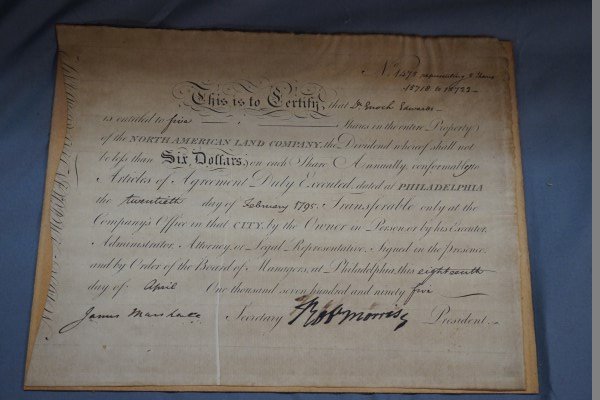 No 1473 representing 5 Shares
18718 to 18722 —
This is to Certify, that Dr Enoch Edwards —
is entitled to five Shares in the entire Property
of the NORTH AMERICAN LAND COMPANY, the Dividend whereof shall not
be less than Six Dollars, on each Share Annually, conformably to
Articles of Agreement Duly Executed, dated at PHILADELPHIA
the twentieth day of February 1795. Transferable only at the
Company's Office in that CITY, by the Owner in Person or by his Executor,
Administrator, Attorney, or Legal Representative. Signed in the Presence
and by Order of the Board of Managers, at Philadelphia, this eighteenth
day of April One thousand seven hundred and ninety five
James Marshall Secretary Rob Morris President.